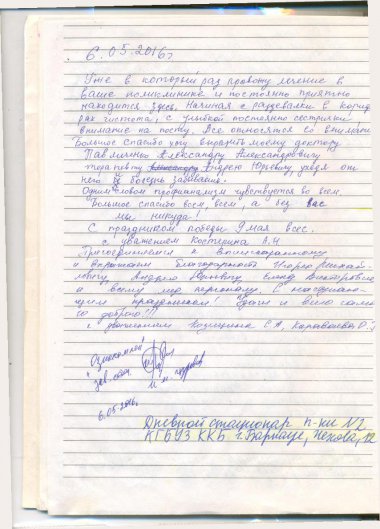 6.05.2016г
Уже в который раз провожу лечение в
ваше поликлинике и постоянно приятно
находится здесь. Начиная с раздевалки в корид
рах чистота, с улыбкой постоянно сестрички
внимание на посту. Все относятся со внимание
Большое спасибо хочу выразить моему доктору
Павличенко Александру Александровичу
терапевту Андрею Юрьевичу уходя от
него все болезни забываешь.
Одним словом профианализм чувствуется во всем.
Большое спасибо всем, всем, а без вас
мы никуда!
С праздником победы 9 мая всес.
с уважением А.Н
Присоединяемся к вышесказанному
и выражаем благодарность
Андрею Юрьевичу Елене Викторовне
и всему мед персоналу. С наступаю-
щим праздником! Удачи и всего само
го доброго!!!
с уважением
Ознакомлен
зав. отд.
6.05.2016г.
Дневной стационар п-ки №2
КГБУЗ ККБ г. Барнаул, Чехова, 12